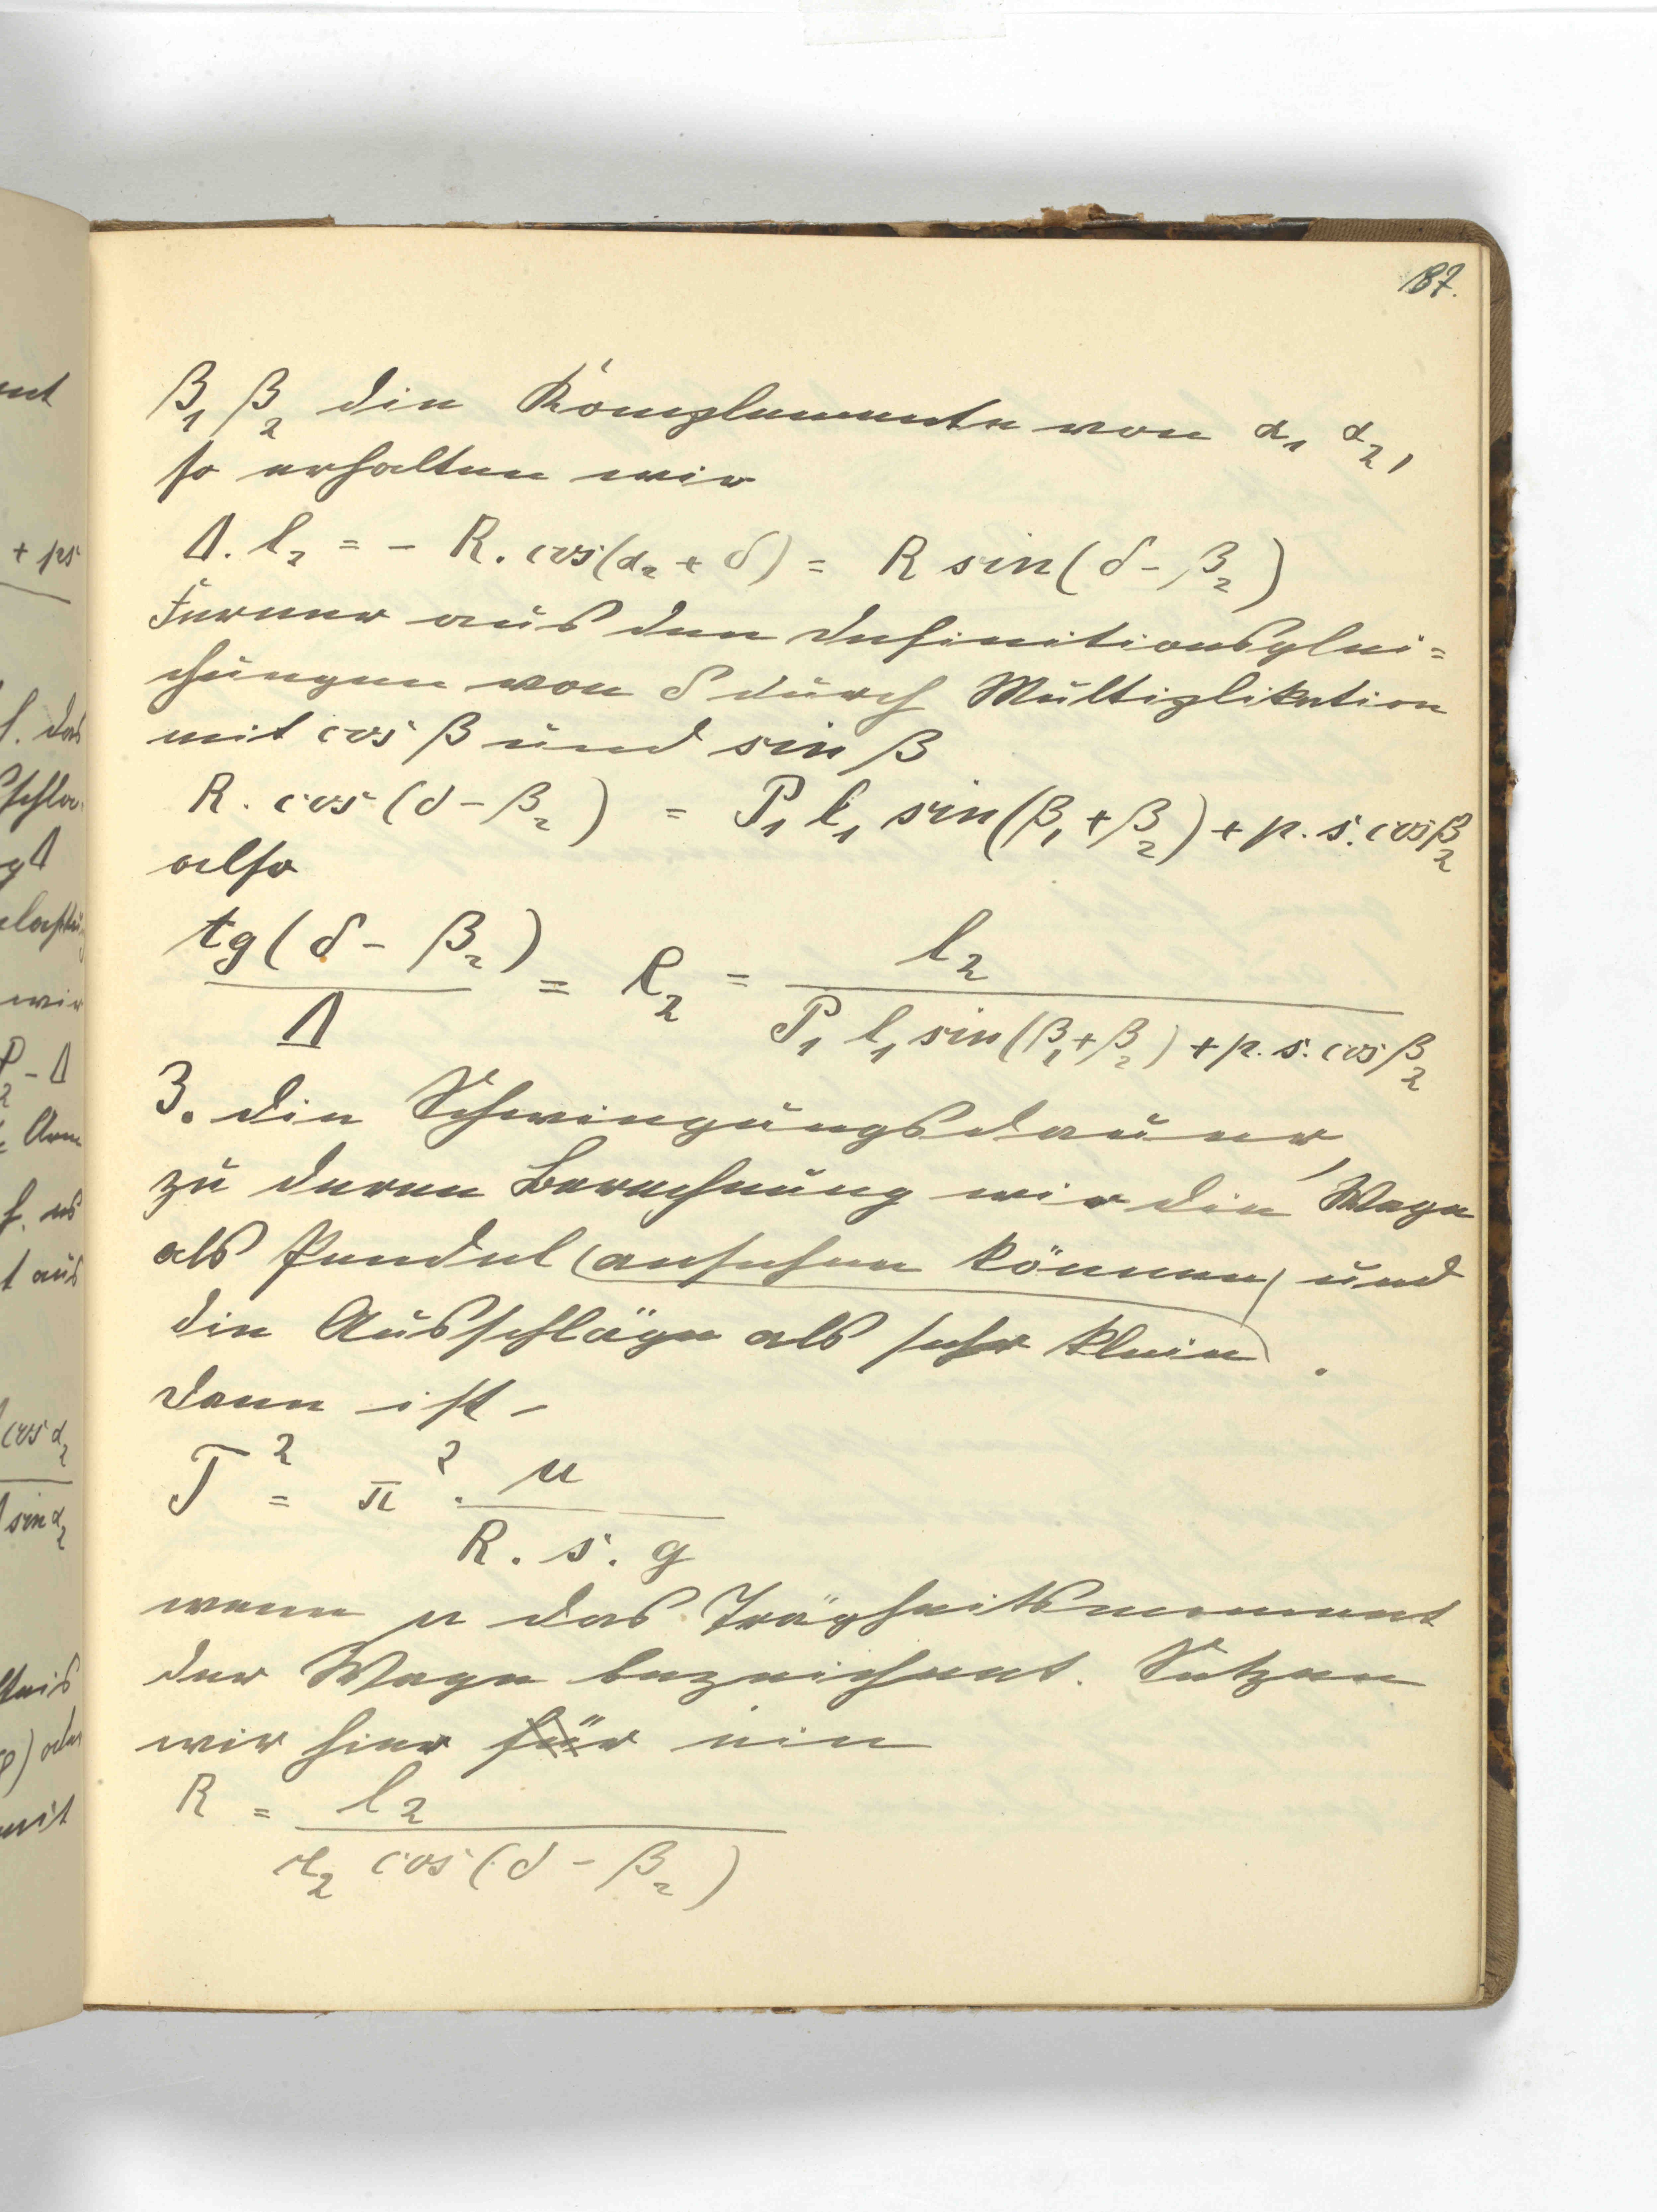 187.
β₁ β₂ die Komplemente von α₁ α₂,
so erhalten wir
Δ. l₂ = - R. cos(α₂ + δ) = R sin(δ - β₂)
Ferner aus den Definitionsglei=
chungen von δ durch Multiplikation
mit cos β und sin β
R. cos (δ - β₂) = P₁ l₁ sin(β₁ + β₂) + p. s. cos β₂
also
tg(δ - β₂) / Δ = l₂ / P₁ l₁ sin(β₁ + β₂) + p. s. cos β₂
3. die Schwingungsdauer,
zu deren Berechnung wir die Wage
als Pendel (ansehen können) und
die Ausschläge als sehr klein.
dann ist
T² = π² . μ / R. s. g
wenn μ das Trägheitsmoment
der Wage bezeichnet. Setzen
wir hier für ein
R = l₂ / r₂ cos(δ - β₂)
+ ps
f. das
wir
P₂ - Δ
f. es
t aus
cos α₂
sin α₂
mit